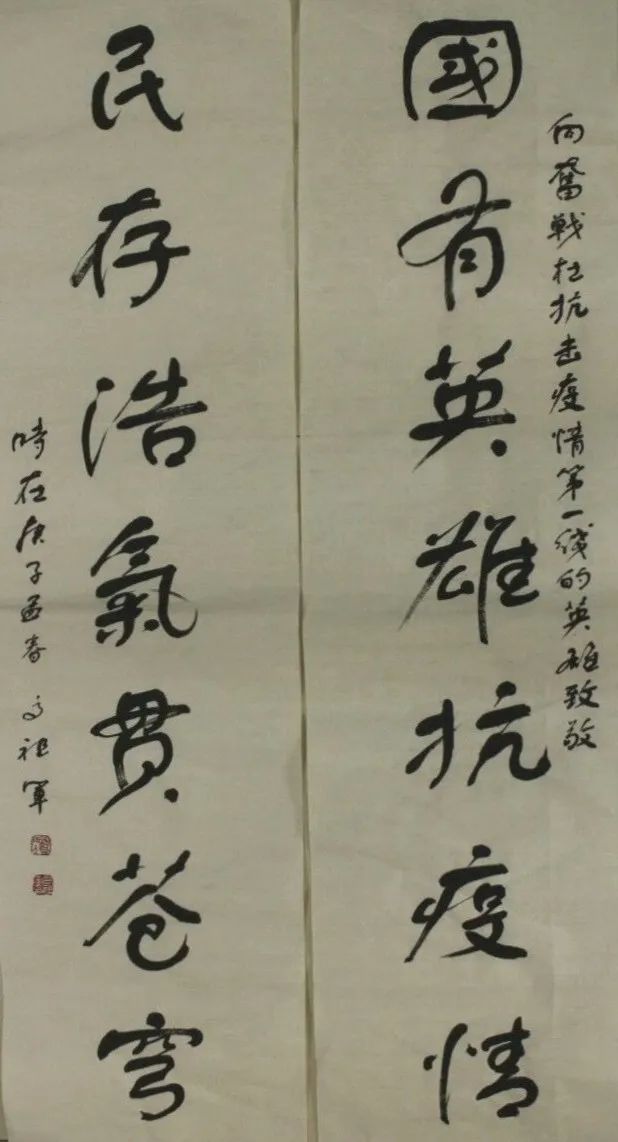 向奮戰在抗击疫情第一线的英雄致敬
國有英雄抗疫情
民存浩氣貫苍穹
時在庚子孟春 高祖軍